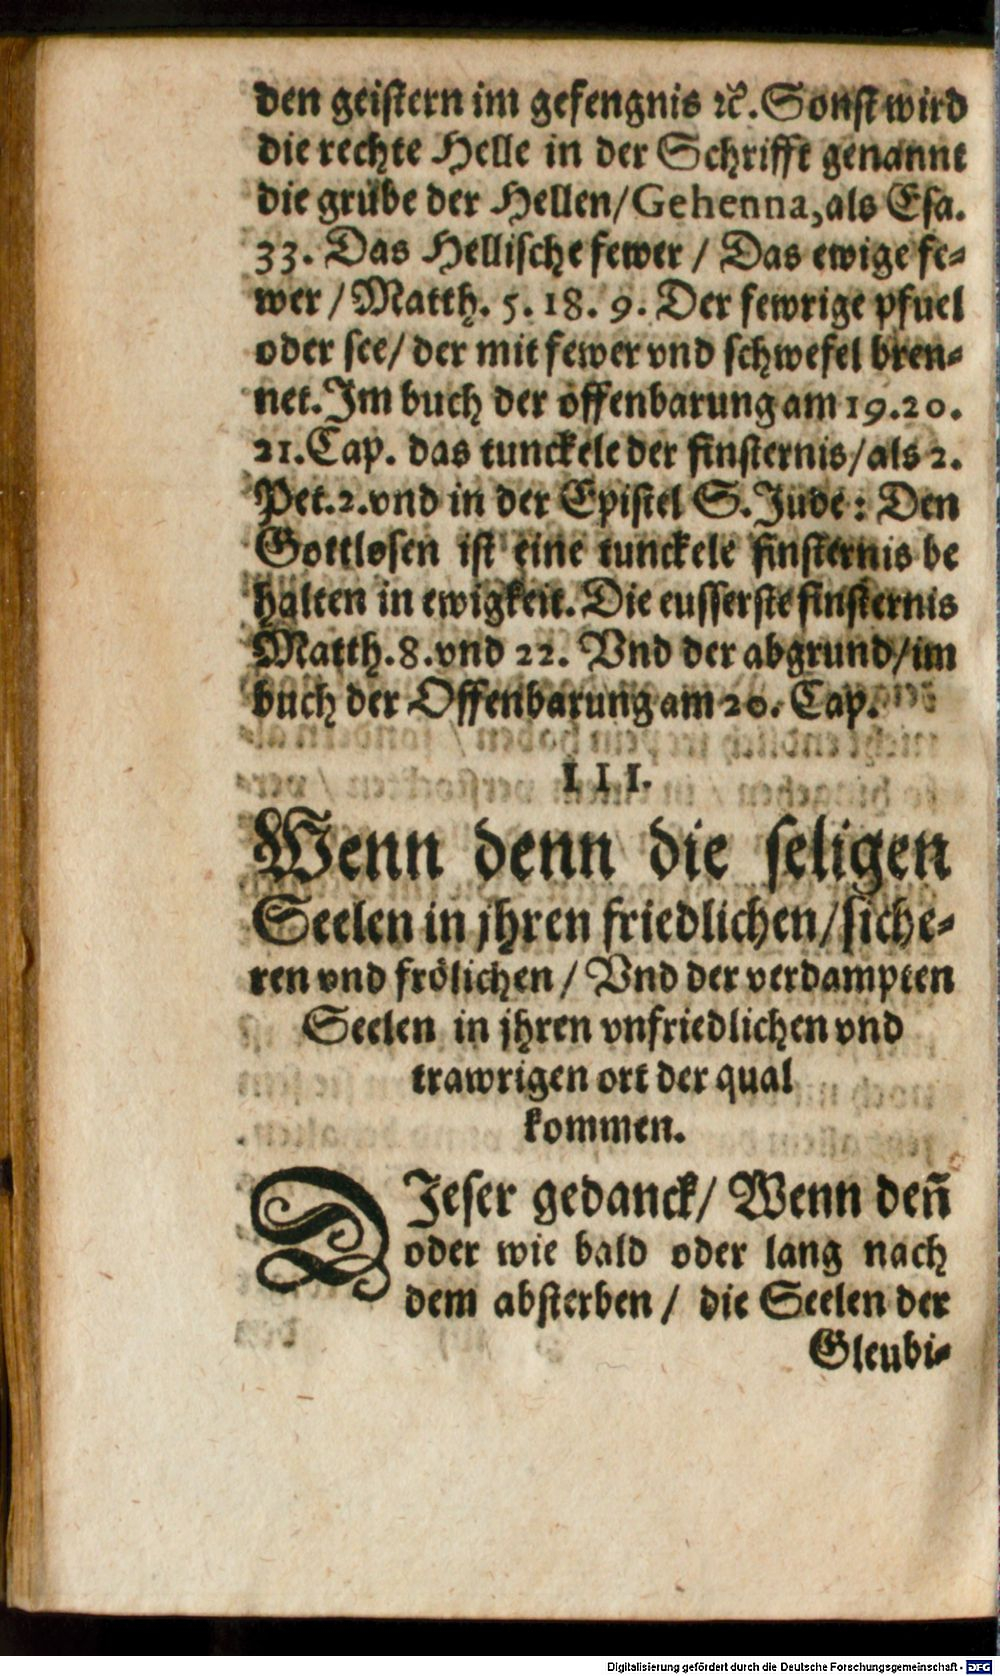 den geistern im gefengnis ꝛc. Sonst wird
die rechte Helle in der Schrifft genannt
die grube der Hellen/ Gehenna, als Esa.
33. Das Hellische fewer / Das ewige fe-
wer / Matth. 5. 18. 9. Der fewrige pfuel
oder see/ der mit fewer vnd schwefel bren-
net. Im buch der offenbarung am 19. 20.
21. Cap. das tunckele der finsternis/ als 2.
Pet. 2. vnd in der Epistel S. Jude: Den
Gottlosen ist eine tunckele finsternis be
halten in ewigkeit. Die eusserste finsternis
Matth. 8. vnd 22. Vnd der abgrund/ im
buch der Offenbarung am 20. Cap.
III.
Wenn denn die seligen
Seelen in jhren friedlichen/ siche-
ren vnd frölichen / Vnd der verdampten
Seelen in jhren vnfriedlichen vnd
trawrigen ort der qual
kommen.
DJeser gedanck/ Wenn deñ
oder wie bald oder lang nach
dem absterben / die Seelen der
Gleubi-
Digitalisierung gefördert durch die Deutsche Forschungsgemeinschaft - DFG